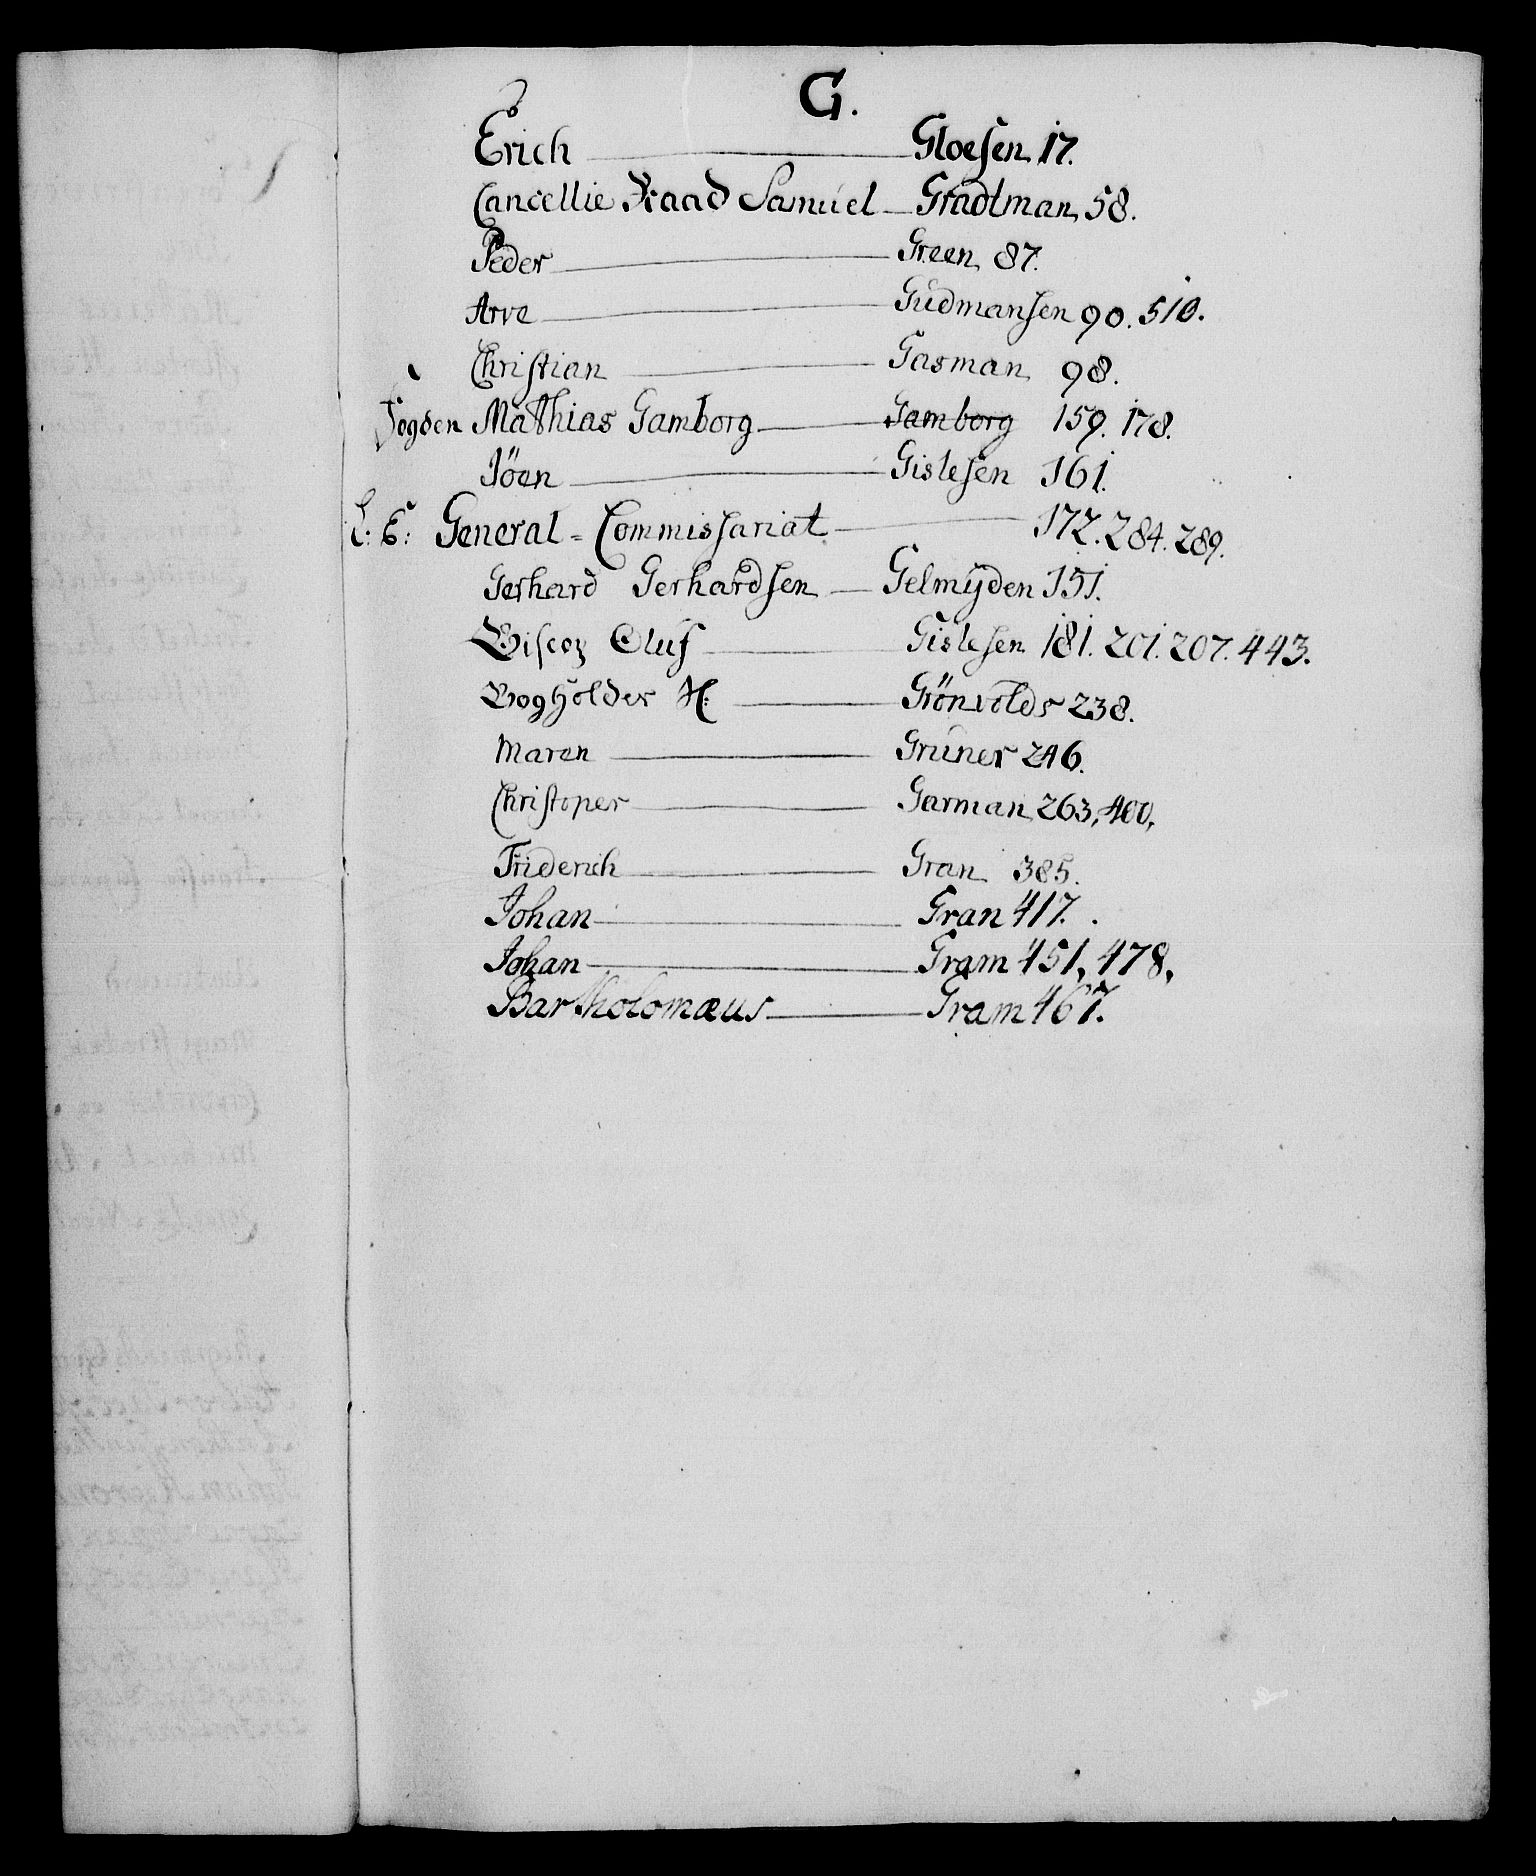 G.
Erich — Gloesen 17.
Cancellie Raad Samuel — Gradtman 58.
Peder — Green 87.
Arve — Gudmansen 90. 510.
Christian — Gasman 98.
Fogden Mathias Gamborg — Gamborg 159. 178.
Jöen — Gislesen 161.
General = Commissariat — 172. 284. 289.
Gerhard Gerhardsen — Gelmÿden 151.
Biscop Oluf — Gislesen 181. 201. 207. 443.
Bogholder H: — Grönvolds 238.
Maren — Gruner 246.
Christoper — Garman 263, 400,
Friderich — Gran 385.
Johan — Gran 417.
Johan — Gram 451, 478,
Bartholomæus — Gram 467.